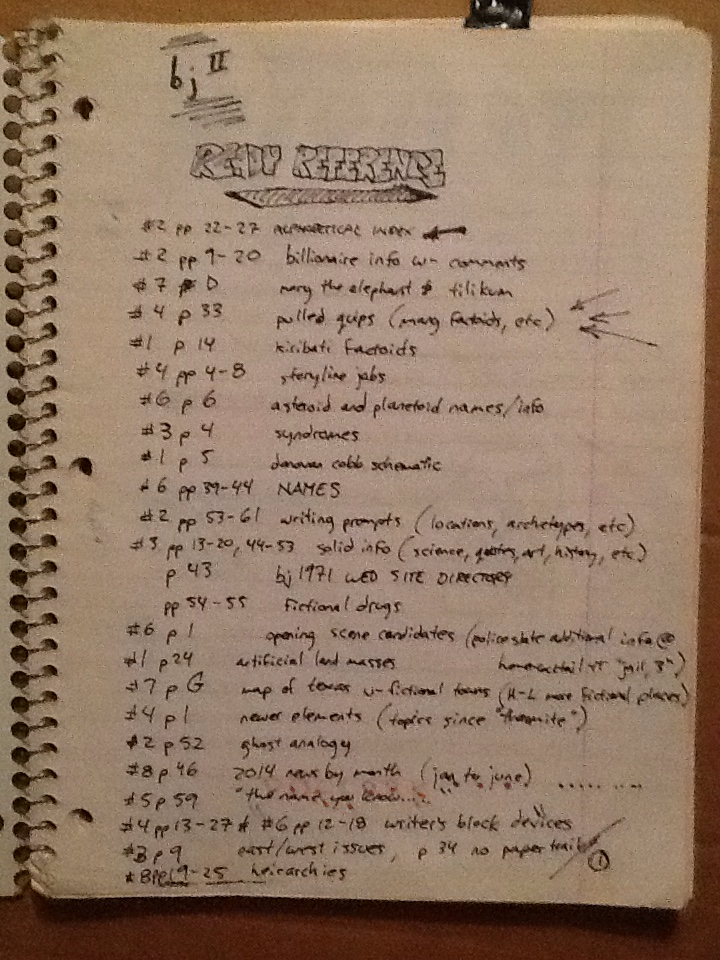 bj II
READY REFERENCE
#2 pp 22-27 ALPHABETICAL INDEX
#2 pp 9-20 billionaire info w- comments
#7 p D mary the elephant & tilikum
#4 p 33 pulled quips (many factoids, etc)
#1 p 14 kiribati factoids
#4 pp 4-8 storyline jabs
#6 p 6 asteroid and planetoid names/info
#3 p 4 syndromes
#1 p 5 donovan cobb schematic
#6 pp 39-44 NAMES
#2 pp 53-61 writing prompts (locations, archetypes, etc)
#3 pp 13-20, 44-53 solid info (science, quotes, art, history, etc)
p 43 bj 1971 WEB SITE DIRECTORY
pp 54-55 fictional drugs
#6 p 1 opening scene candidates (police state additional info @
#1 p 24 artificial land masses "jail, 3")
#7 p G map of texas w-fictional towns (H-L more fictional places)
#4 p 1 newer elements (topics since "thermite")
#2 p 52 ghost analogy
#8 p 46 2014 news by month (jan to june)
#5 p 59 "the name you know..."
#4 pp 13-27 & #6 pp 12-18 writer's block devices
#3 p 9 east/west issues, p 34 no paper trail
#8 pp 19-25 heirarchies
1